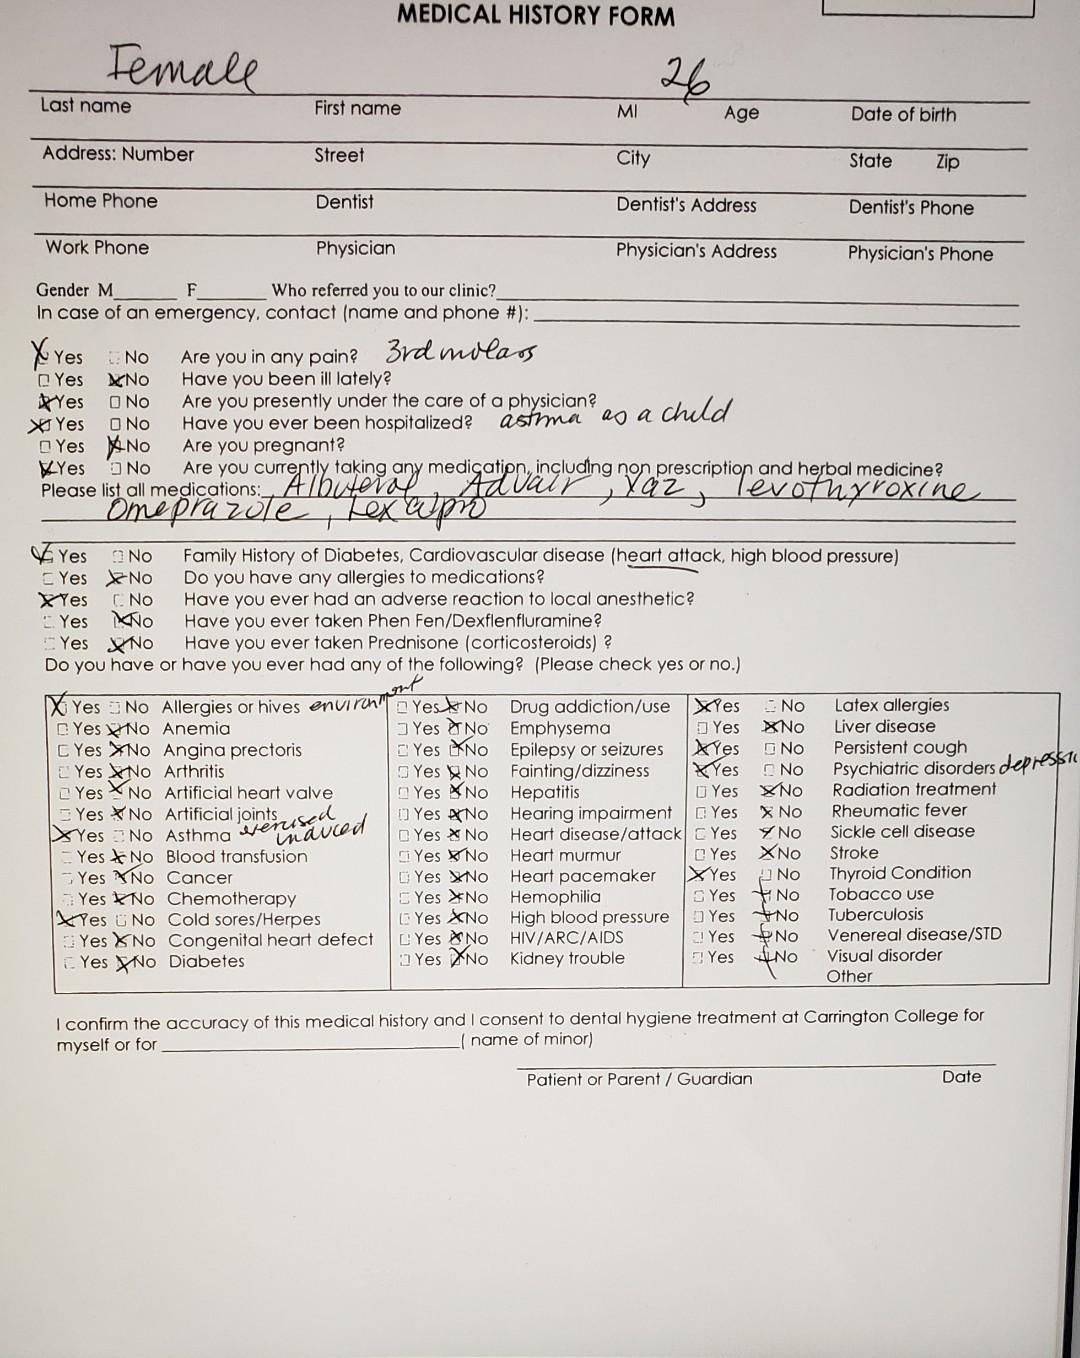 MEDICAL HISTORY FORM
Female 26
Last name First name MI Age Date of birth
Address: Number Street City State Zip
Home Phone Dentist Dentist's Address Dentist's Phone
Work Phone Physician Physician's Address Physician's Phone
Gender M______ F______ Who referred you to our clinic?
In case of an emergency, contact (name and phone #):
Yes No Are you in any pain? 3rd molars
Yes No Have you been ill lately?
Yes No Are you presently under the care of a physician?
Yes No Have you ever been hospitalized? astma as a child
Yes No Are you pregnant?
Yes No Are you currently taking any medication, including non prescription and herbal medicine?
Please list all medications: Albuterol, Advair, Yaz, levothyroxine
omeprazole, Lexapro
Yes No Family History of Diabetes, Cardiovascular disease (heart attack, high blood pressure)
Yes No Do you have any allergies to medications?
Yes No Have you ever had an adverse reaction to local anesthetic?
Yes No Have you ever taken Phen Fen/Dexflenfluramine?
Yes No Have you ever taken Prednisone (corticosteroids) ?
Do you have or have you ever had any of the following? (Please check yes or no.)
Yes No Allergies or hives environment
Yes No Anemia
Yes No Angina prectoris
Yes No Arthritis
Yes No Artificial heart valve
Yes No Artificial joints
Yes No Asthma exercised induced
Yes No Blood transfusion
Yes No Cancer
Yes No Chemotherapy
Yes No Cold sores/Herpes
Yes No Congenital heart defect
Yes No Diabetes
Yes No Drug addiction/use
Yes No Emphysema
Yes No Epilepsy or seizures
Yes No Fainting/dizziness
Yes No Hepatitis
Yes No Hearing impairment
Yes No Heart disease/attack
Yes No Heart murmur
Yes No Heart pacemaker
Yes No Hemophilia
Yes No High blood pressure
Yes No HIV/ARC/AIDS
Yes No Kidney trouble
Yes No Latex allergies
Yes No Liver disease
Yes No Persistent cough
Yes No Psychiatric disorders depressi
Yes No Radiation treatment
Yes No Rheumatic fever
Yes No Sickle cell disease
Yes No Stroke
Yes No Thyroid Condition
Yes No Tobacco use
Yes No Tuberculosis
Yes No Venereal disease/STD
Yes No Visual disorder
Other
I confirm the accuracy of this medical history and I consent to dental hygiene treatment at Carrington College for
myself or for ______ ( name of minor)
Patient or Parent / Guardian Date